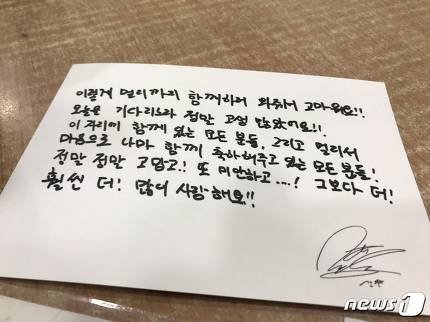 이렇게 멀리까지 함께하러 와줘서 고마워요!!
오늘은 기다리느라 정말 고생 많았어요!!
이 자리에 함께 있는 모든 분들, 그리고 멀리서
마음으로 나마 함께 축하해주고 있는 모든 분들!
정말 정말 고맙고! 또 미안하고....! 그보다 더!
훨씬 더! 많이 사랑해요!!
NEWS1